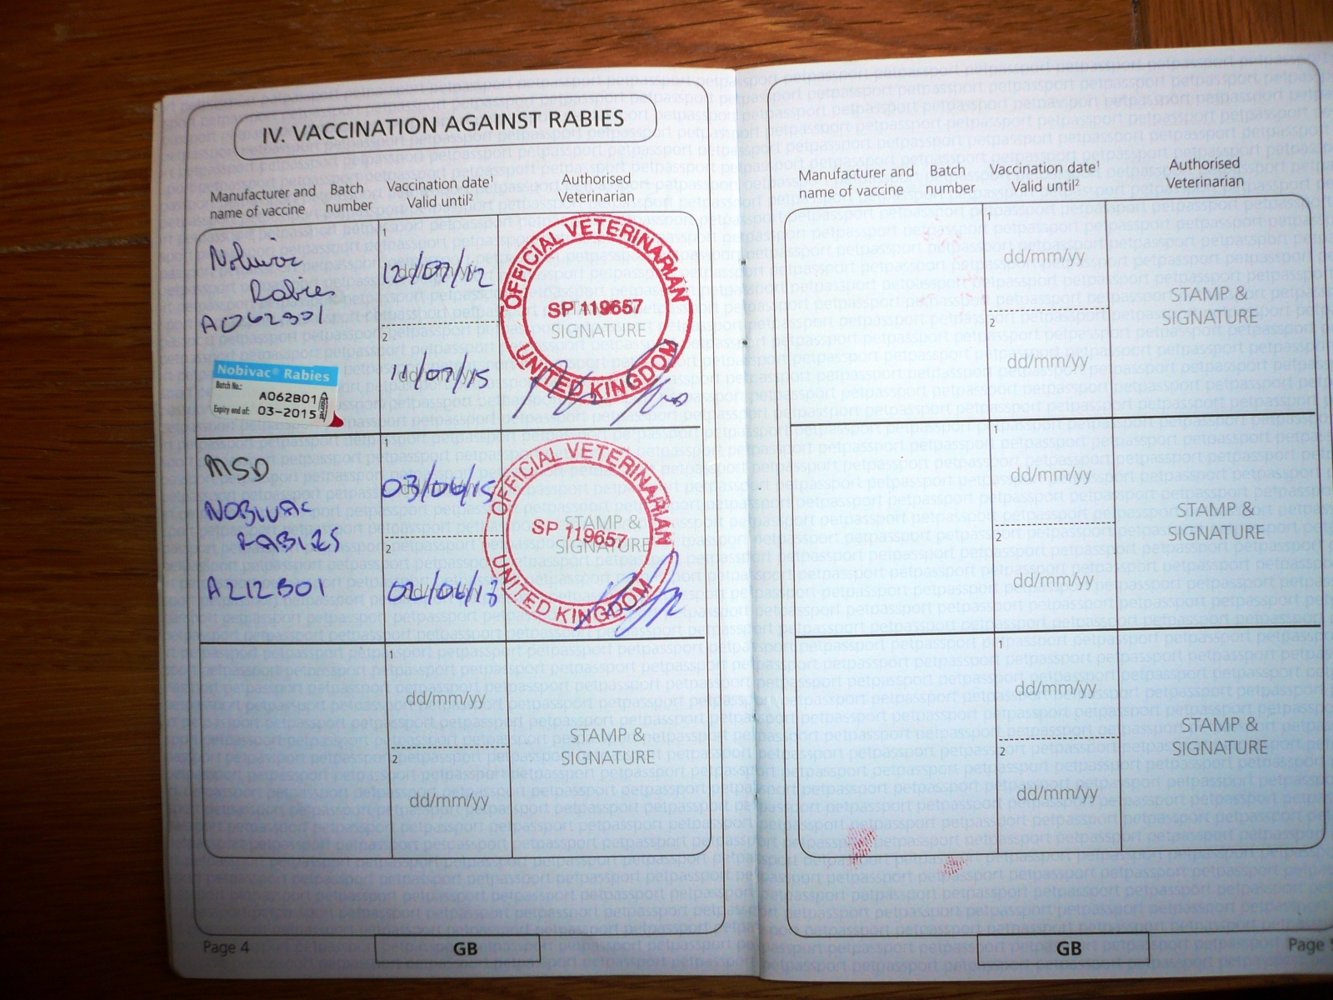 IV. VACCINATION AGAINST RABIES
Manufacturer and name of vaccine
Batch number
Vaccination date¹
Valid until²
Authorised Veterinarian
Nobivac
Rabies
A062B01
Nobivac® Rabies
Batch No.:
A062B01
Expiry end of: 03-2015
1
12/07/12
2
11/07/15
OFFICIAL VETERINARIAN
SP 119657
UNITED KINGDOM
STAMP &
SIGNATURE
MSD
NOBIVAC
RABIES
A212B01
1
03/06/15
2
OFFICIAL VETERINARIAN
SP 119657
UNITED KINGDOM
STAMP &
SIGNATURE
1
dd/mm/yy
2
dd/mm/yy
STAMP &
SIGNATURE
Page 4
GB
Manufacturer and name of vaccine
Batch number
Vaccination date¹
Valid until²
Authorised Veterinarian
1
dd/mm/yy
2
dd/mm/yy
STAMP &
SIGNATURE
1
dd/mm/yy
2
dd/mm/yy
STAMP &
SIGNATURE
1
dd/mm/yy
2
dd/mm/yy
STAMP &
SIGNATURE
GB
Page